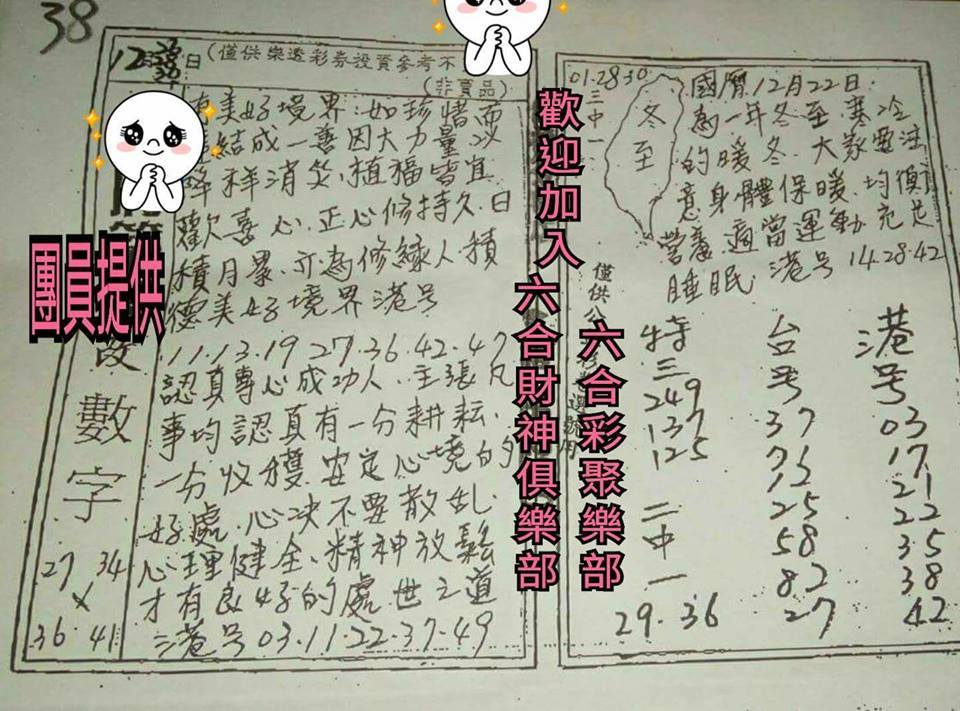 38
12月
日(僅供樂透彩券投資參考不
(非賣品)
美好境界:如珍惜而
結成一善因大力量以
降祥消災、植福皆宜
歡喜心.正心修持久.日
積月累.亦為修練人.積
德美好境界港号
11.13.19.27.36.42.47
認真專心成功人.主張凡
事均認真有一分耕耘.
一分收獲.安定心境的
好處.心決不要散乱.
心理健全、精神放鬆
才有良好的處世之道
港号03.11.22.37.49
團員提供
數字
27 34
×
36 41
歡迎加入六合財神俱樂部
六合彩聚樂部
01.28.30
三中一
冬至
國曆12月22日.
為一年冬至.寒冷
的暖冬.大家要注
意身體保暖.均衡
營養.適當運動.充足
睡眠.港号14.28.42
僅供公
特三
249
137
125
二中一
29.36
台号
37
25
58
82
27
港号
03
17
21
22
35
38
42